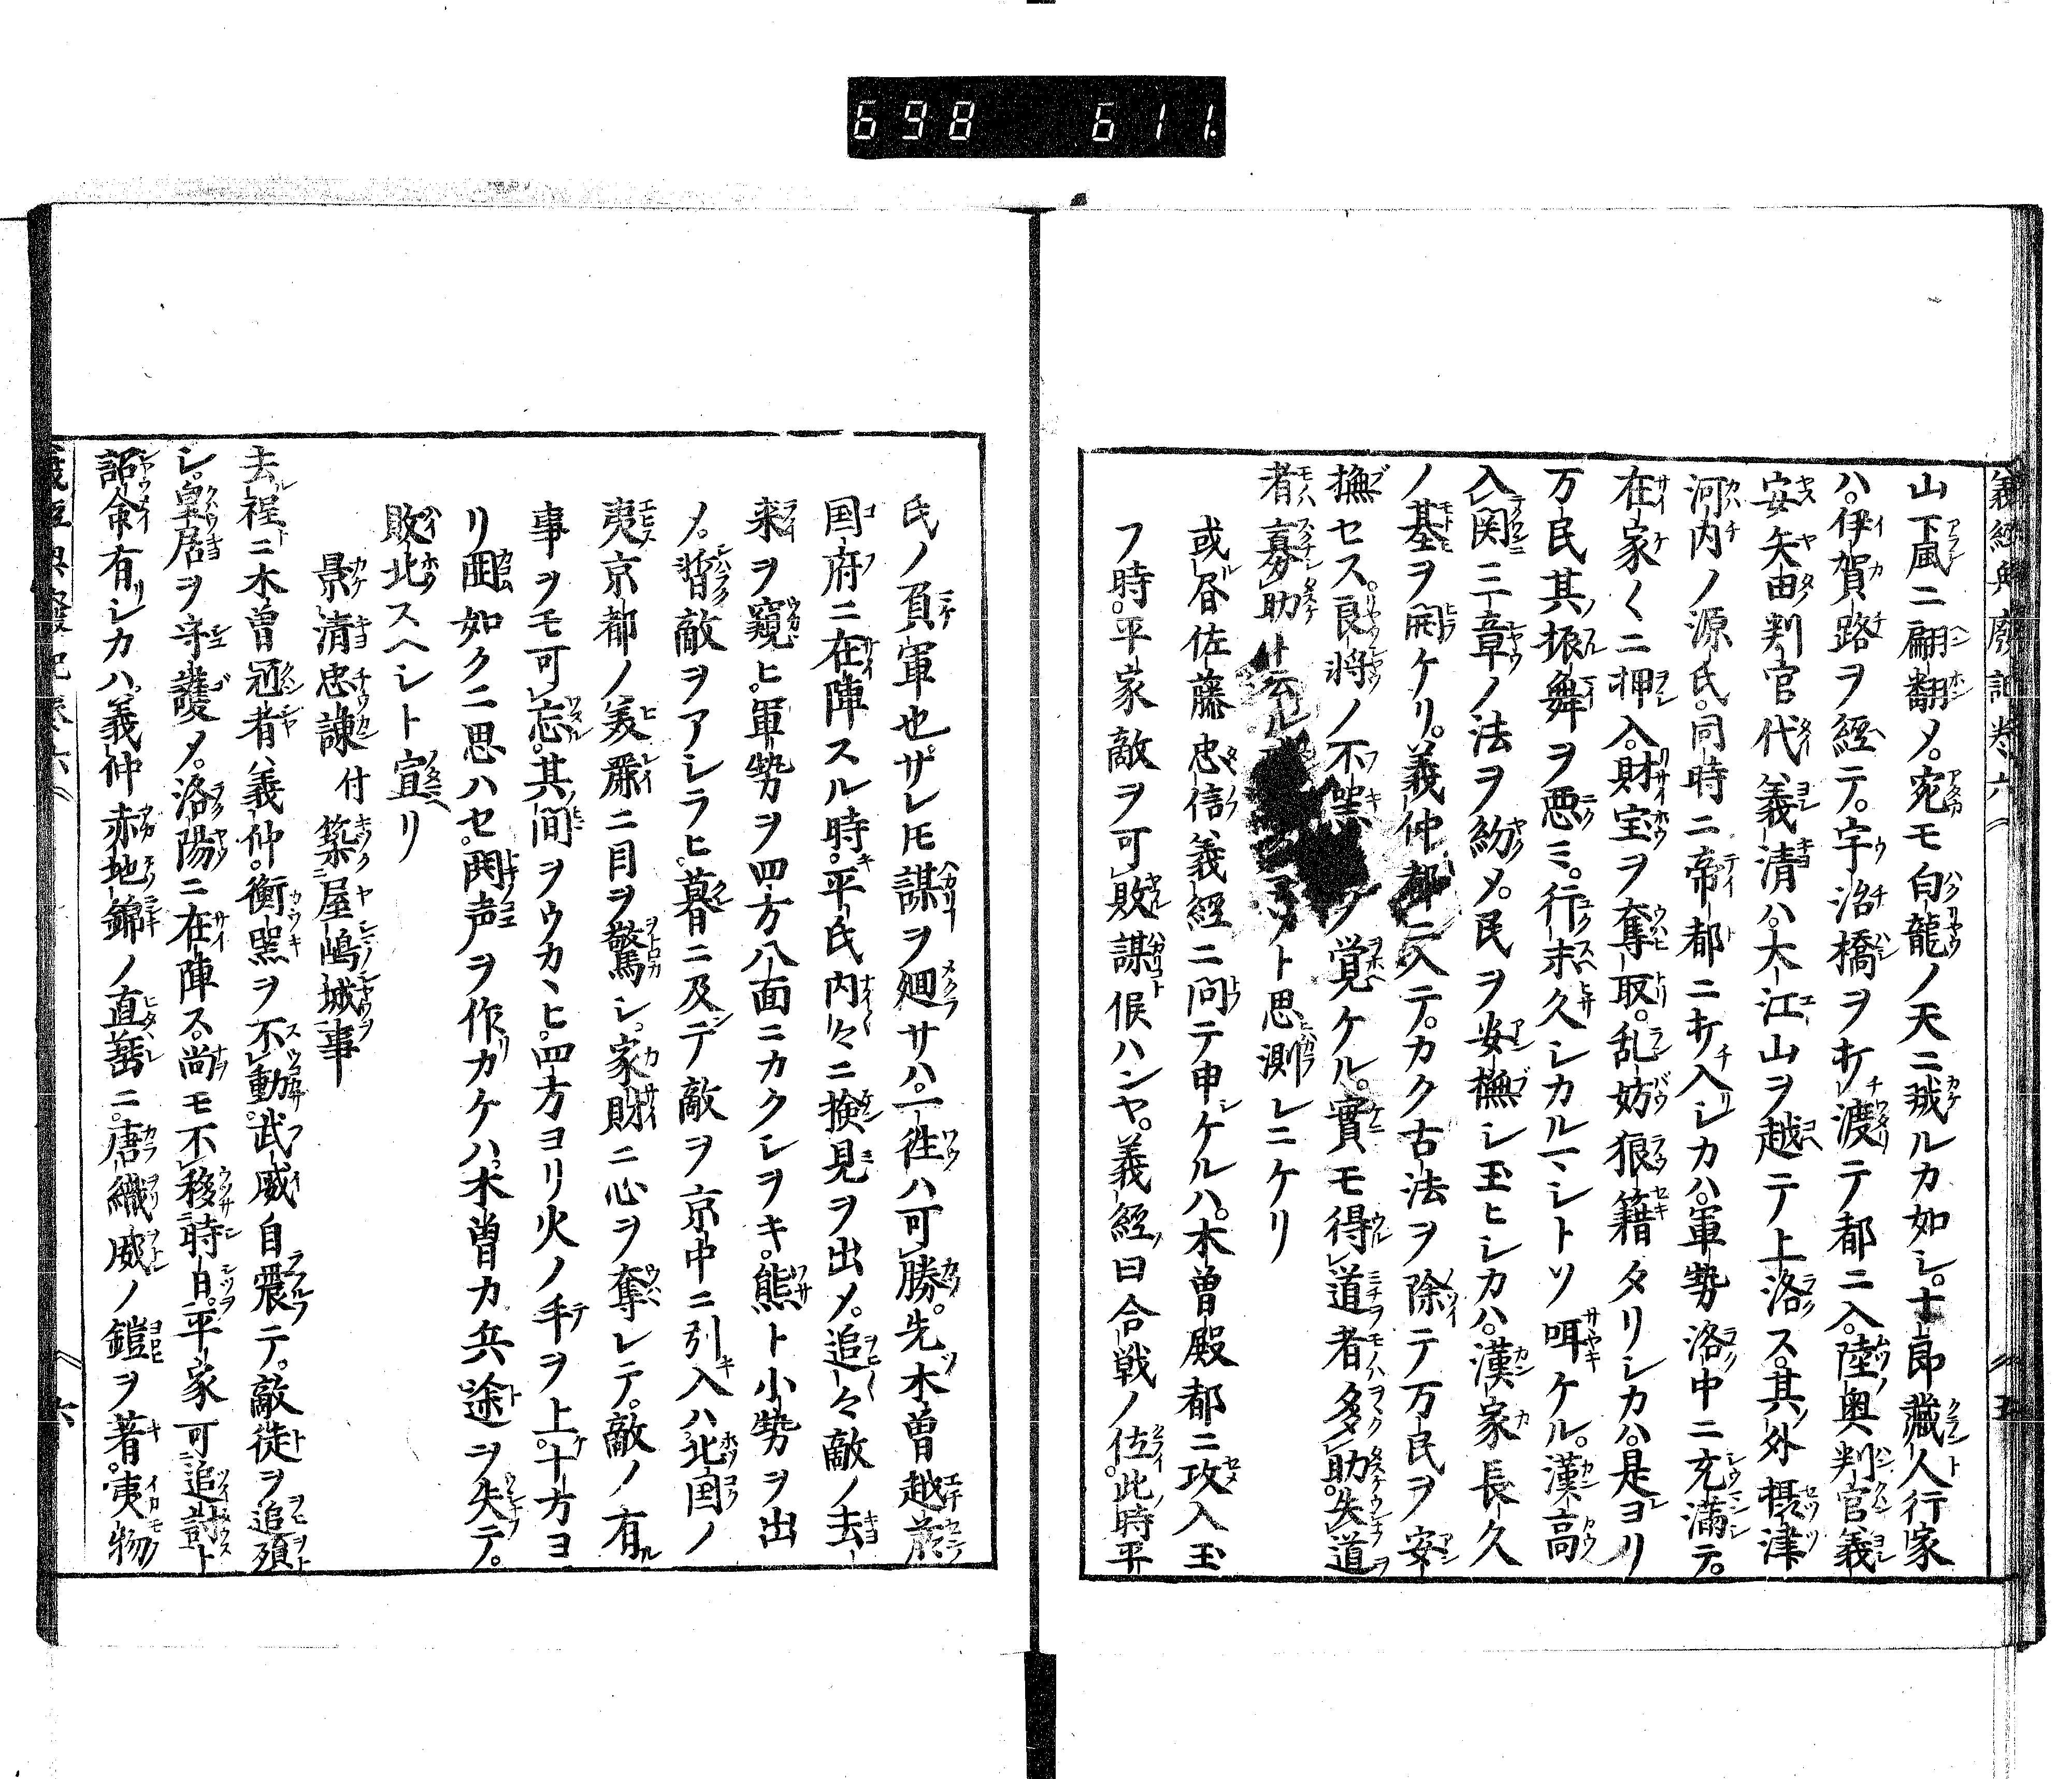 698 611
義經興廢記卷六 五
山下風ニ翩翻〆。宛モ白龍ノ天ニ戕ルカ如シ。十郎藏人行家
ハ。伊賀路ヲ經テ。宇治橋ヲ打渡テ都ニ入。陸奥判官義
安矢田判官代義清ハ。大江山ヲ越テ上洛ス。其外摂津
河内ノ源氏。同時ニ帝都ニ打入シカハ。軍勢洛中ニ充滿テ。
在家〱ニ押入。財宝ヲ奪取。乱妨狼籍タリシカハ。是ヨリ
万民其振舞ヲ悪ミ。行末久シカルマシトソ咡ケル。漢高
入関三章ノ法ヲ約〆。民ヲ安撫シ玉ヒシカハ。漢家長久
ノ基ヲ開ケリ。義仲都ニ入テ。カク古法ヲ除テ万民ヲ安
撫セス。良将ノ不噐ノ覚ケル。實モ得道者多助。失道
者寡助ト云ル ト思測レニケリ
或昼佐藤忠信義經ニ問テ申ケルハ。木曽殿都ニ攻入玉
フ時。平家敵ヲ可敗謀候ハンヤ。義經曰合戦ノ位。此時平
氏ノ負軍也。サレトモ謀ヲ廻サハ。一徃ハ可勝。先木曽越前
国府ニ在陣スル時。平氏内々ニ撿見ヲ出〆。追々敵ノ去
来ヲ窺ヒ。軍勢ヲ四方八面ニカクシヲキ。熊ト小勢ヲ出
〆。暫敵ヲアシラヒ。暮ニ及テ敵ヲ京中ニ引入ハ。北国ノ
夷京都ノ美麗ニ目ヲ驚シ。家財ニ心ヲ奪レテ。敵ノ有
事ヲモ可忘。其間ヲウカヽヒ。四方ヨリ火ノ手ヲ上。十方ヨ
リ囲如クニ思ハセ。鬨声ヲ作カケハ。木曽カ兵途ヲ失テ。
敗北スヘシト宣リ
景清忠諌付築屋嶋城事
去程ニ木曽冠者義仲。衡噐ヲ不動。武威自震テ。敵徒ヲ追殞
シ。皇居ヲ守護〆。洛陽ニ在陣ス。尚モ不移時日。平家可追討ト
詔命有シカハ。義仲赤地錦ノ直垂ニ。唐織威ノ鎧ヲ著。夷物
義經興廢記卷六 六